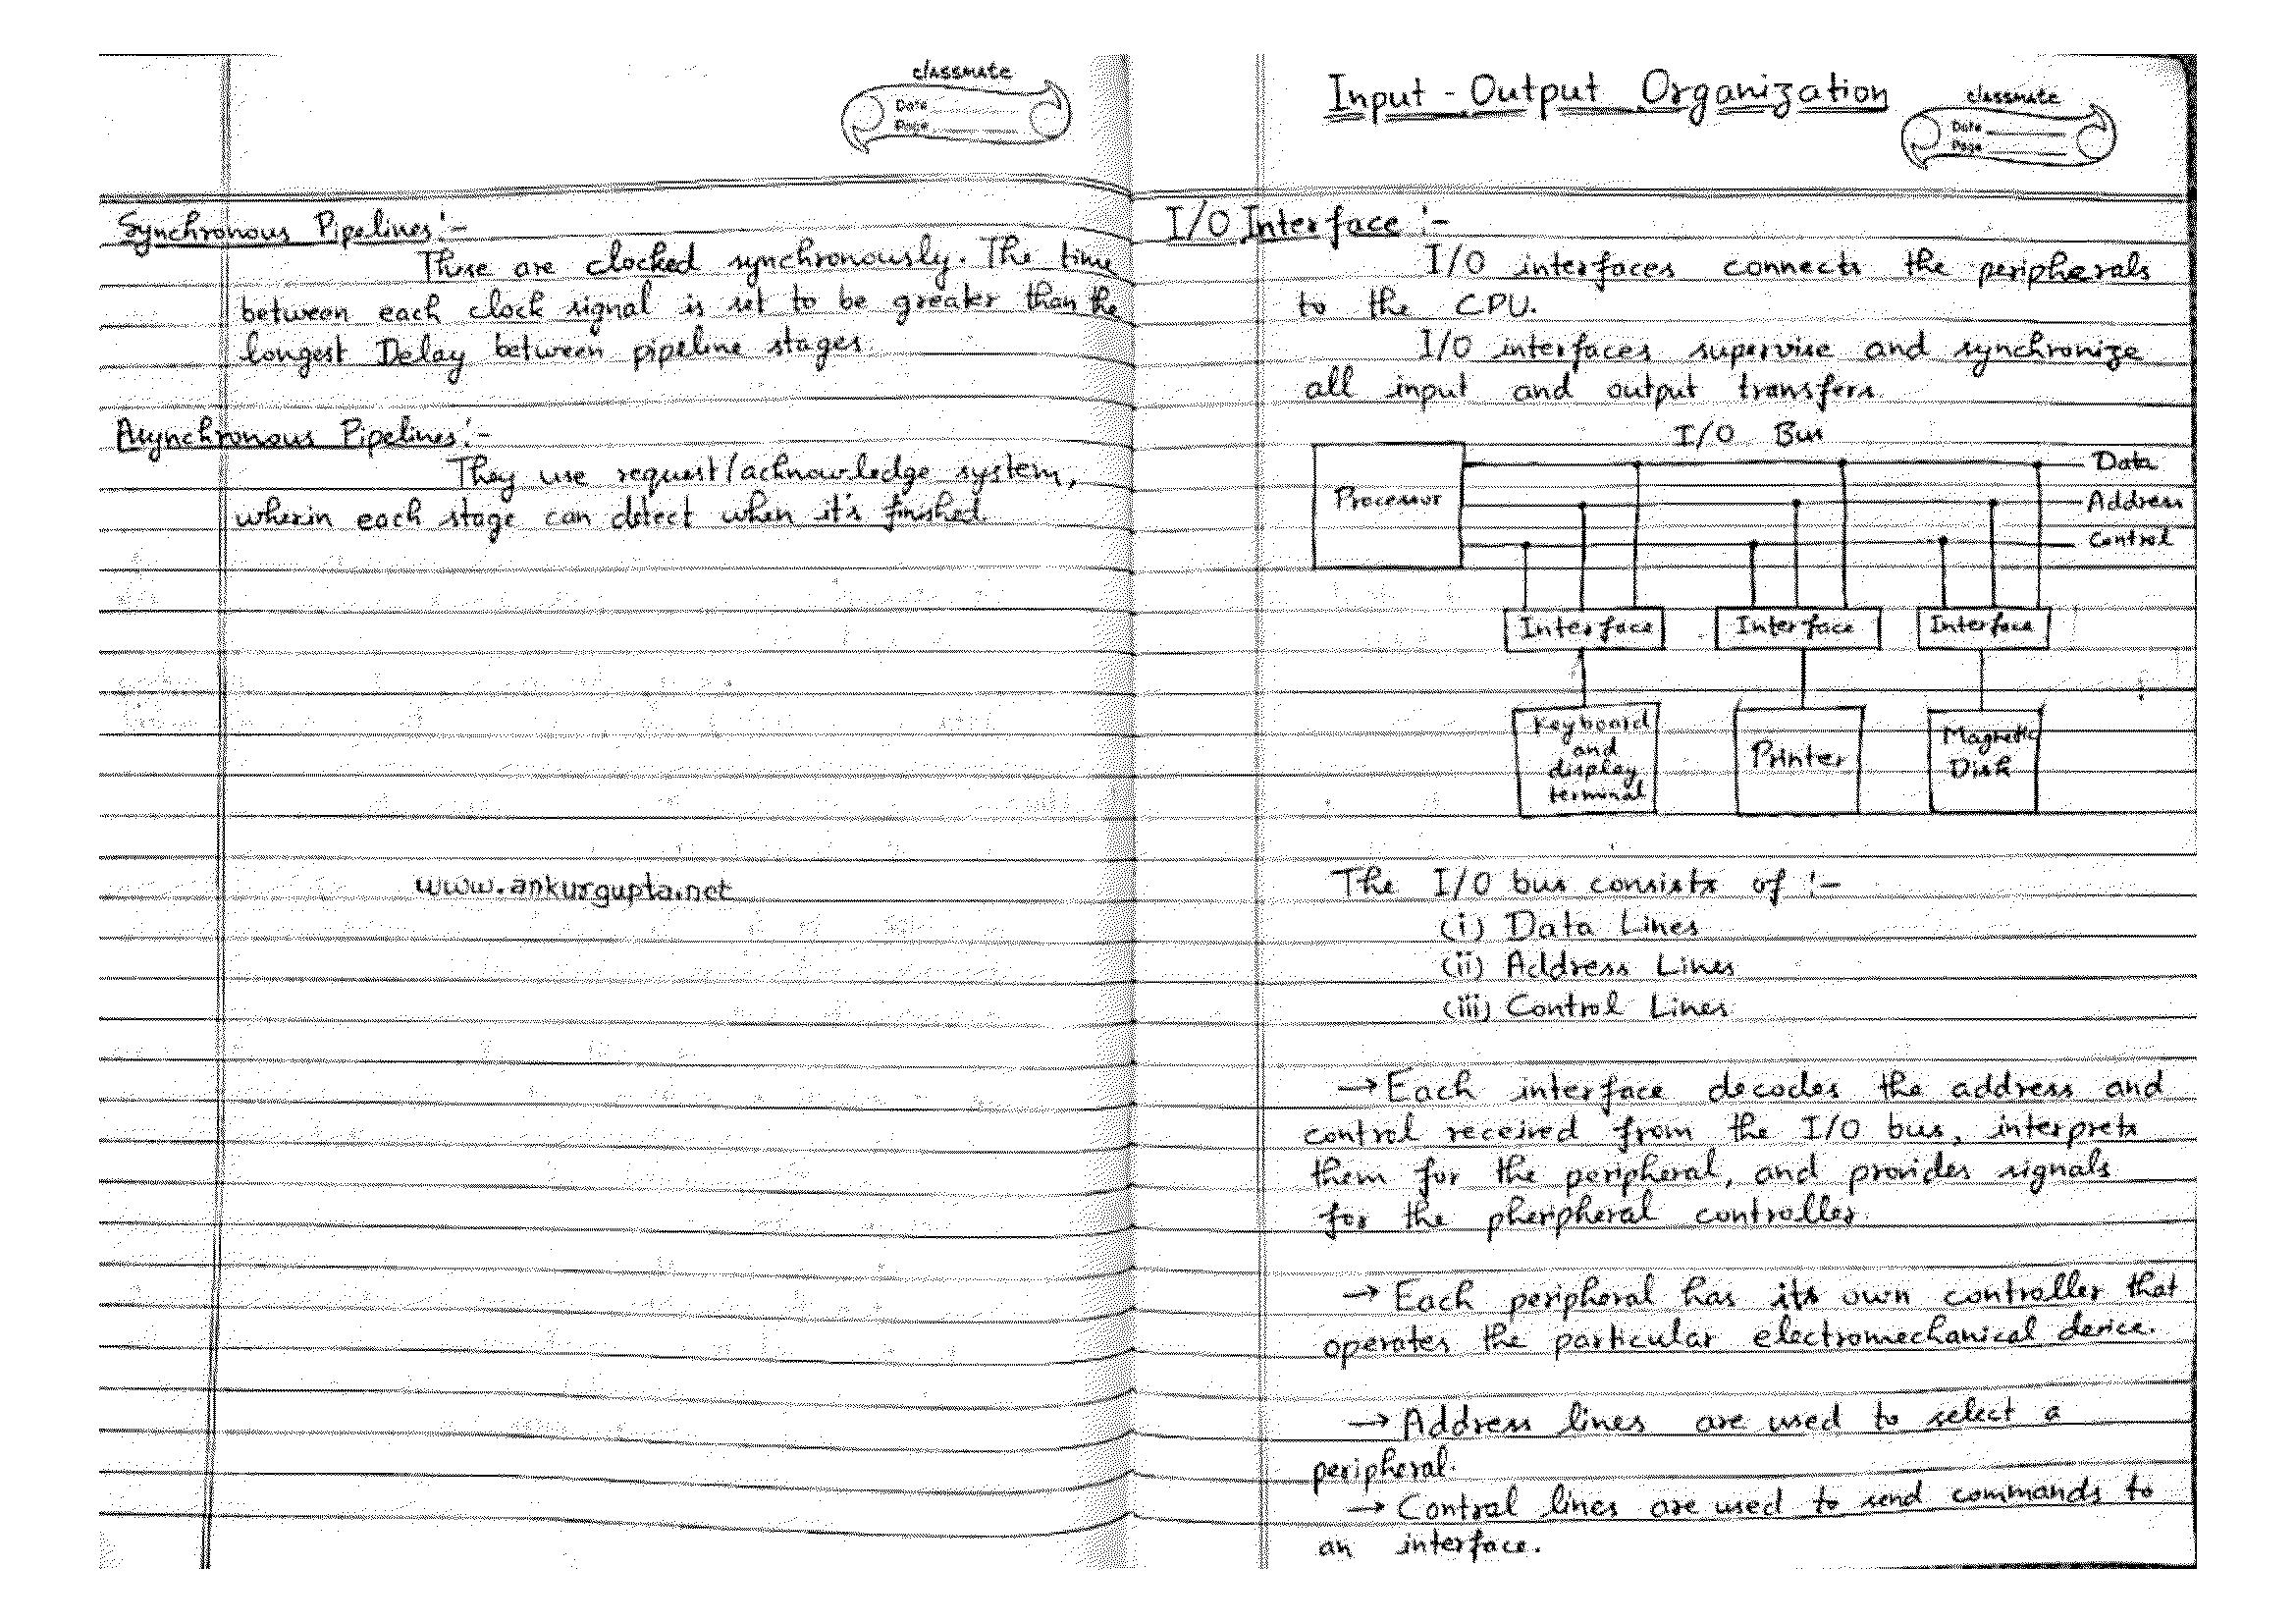 classmate
Date
Page
Synchronous Pipelines:-
These are clocked synchronously. The time
between each clock signal is set to be greater than the
longest Delay between pipeline stages.
Asynchronous Pipelines:-
They use request/acknowledge system,
wherin each stage can detect when it's finished.
www.ankurgupta.net
Input - Output Organization
classmate
Date
Page
I/O Interface :-
I/O interfaces connects the peripherals
to the CPU.
I/O interfaces supervise and synchronize
all input and output transfers.
I/O Bus
Processor
Data
Address
Control
Interface
Interface
Interface
Keyboard
and
display
terminal
Printer
Magnetic
Disk
The I/O bus consists of :-
(i) Data Lines
(ii) Address Lines
(iii) Control Lines.
→ Each interface decodes the address and
control received from the I/O bus, interprets
them for the peripheral, and provides signals
for the pheripheral controller.
→ Each peripheral has its own controller that
operates the particular electromechanical device.
→ Address lines are used to select a
peripheral.
→ Control lines are used to send commands to
an interface.